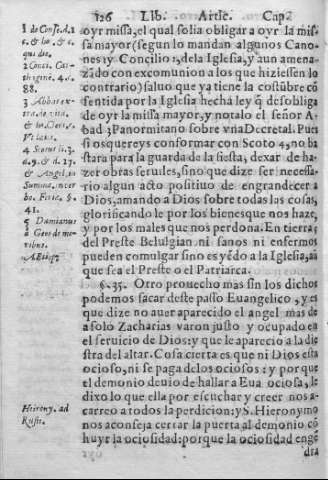 126 Lib. Artic. Cap.
oyr missa, el qual solia obligar a oyr la mis
sa mayor (segun lo mandan algunos Cano-
nes: y Concilio 2 de la Iglesia, y aun amena-
zādo con excomunion a los que hiziessen lo
contrario) saluo que ya tiene la costūbre cō
sentida por la Iglesia hecha ley q̄ desobliga
de oyr la missa mayor, y notalo el señor A-
bad 3 Panormitano sobre vna Decretal. Pues
si os quereys conformar con Scoto 4, no ba
stara para la guarda de la fiesta, dexar de ha-
zer obras seruiles, sino que dize ser necessa-
rio algun acto positiuo de engrandecer a
Dios, amando a Dios sobre todas las cosas,
glorificando le por los bienes que nos haze,
y por los males que nos perdona. En tierras
del Preste Belulgian ni sanos ni enfermos
pueden comulgar sino es yēdo a la Iglesia, aū
que sea el Preste o el Patriarca.
§. 35. Otro prouecho mas sin los dichos
podemos sacar deste passo Euangelico, y es
que dize no auer aparecido el angel mas de
a solo Zacharias varon justo y ocupado en
el seruicio de Dios: y que le aparecio a la die
stra del altar. Cosa cierta es que ni Dios esta
ocioso, ni se paga de los ociosos: y porque
el demonio deuio de hallar a Eua ociosa, le
dixo lo que ella por escuchar y creer nos a-
carreo a todos la perdicion: y S. Hieronymo
nos aconseja cerrar la puerta al demonio cō
huyr la ociosidad: porque la ociosidad engē
dra
1 de Cōse. d. 1
2 Conci. Car
thagine. 4. c.
88.
3 Abbas ex-
4 Scotus li. 3.
d. 9. & d. 27.
& Angel. in
Summa, ver
bo. Feria, §.
41.
5 Damianus
a Goes de mo
ribus.
Hierony. ad
Rusti.